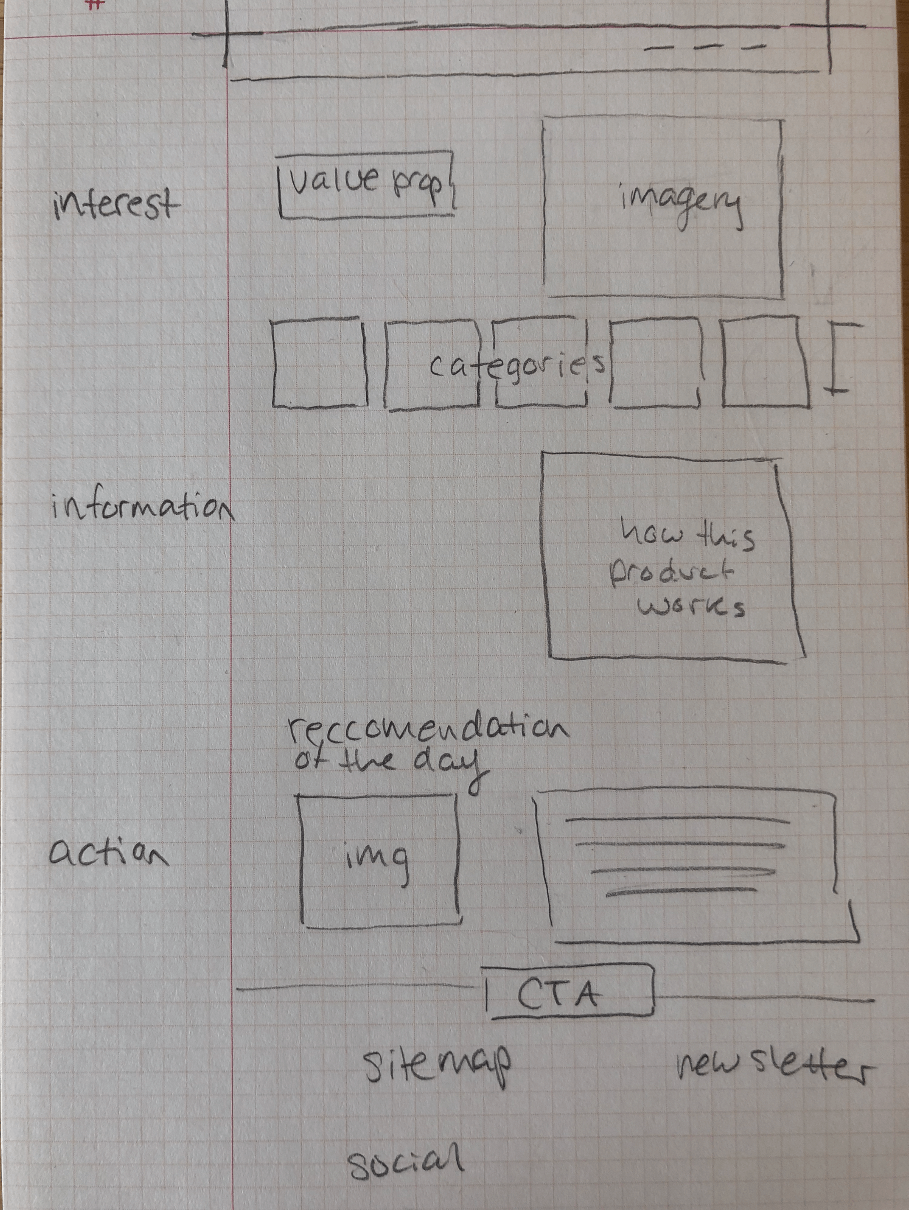 #
interest
value prop
imagery
categories
information
how this
product
works
reccomendation
of the day
action
img
CTA
sitemap
newsletter
social